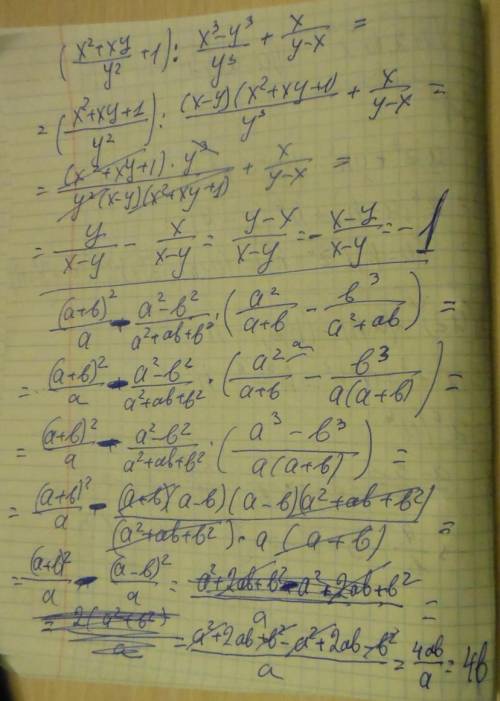 (x²+xy/y² + 1) : x³-y³/y³ + x/y-x =
= (x²+xy+1/y²) : (x-y)(x²+xy+1)/y³ + x/y-x =
= (x²+xy+1)·y³/y²(x-y)(x²+xy+1) + x/y-x =
= y/x-y - x/x-y = y-x/x-y = - x-y/x-y = -1
(a+b)²/a - a²-b²/a²+ab+b² · (a²/a+b - b³/a²+ab) =
= (a+b)²/a - a²-b²/a²+ab+b² · (a² a/a+b - b³/a(a+b)) =
= (a+b)²/a - a²-b²/a²+ab+b² · (a³-b³/a(a+b)) =
= (a+b)²/a - (a+b)(a-b)(a-b)(a²+ab+b²)/(a²+ab+b²)·a(a+b) =
= (a+b)²/a - (a-b)²/a = a²+2ab+b²-a²+2ab+b²/a =
= 2(a²+b²)/a = a²+2ab+b²-a²+2ab-b²/a = 4ab/a = 4b